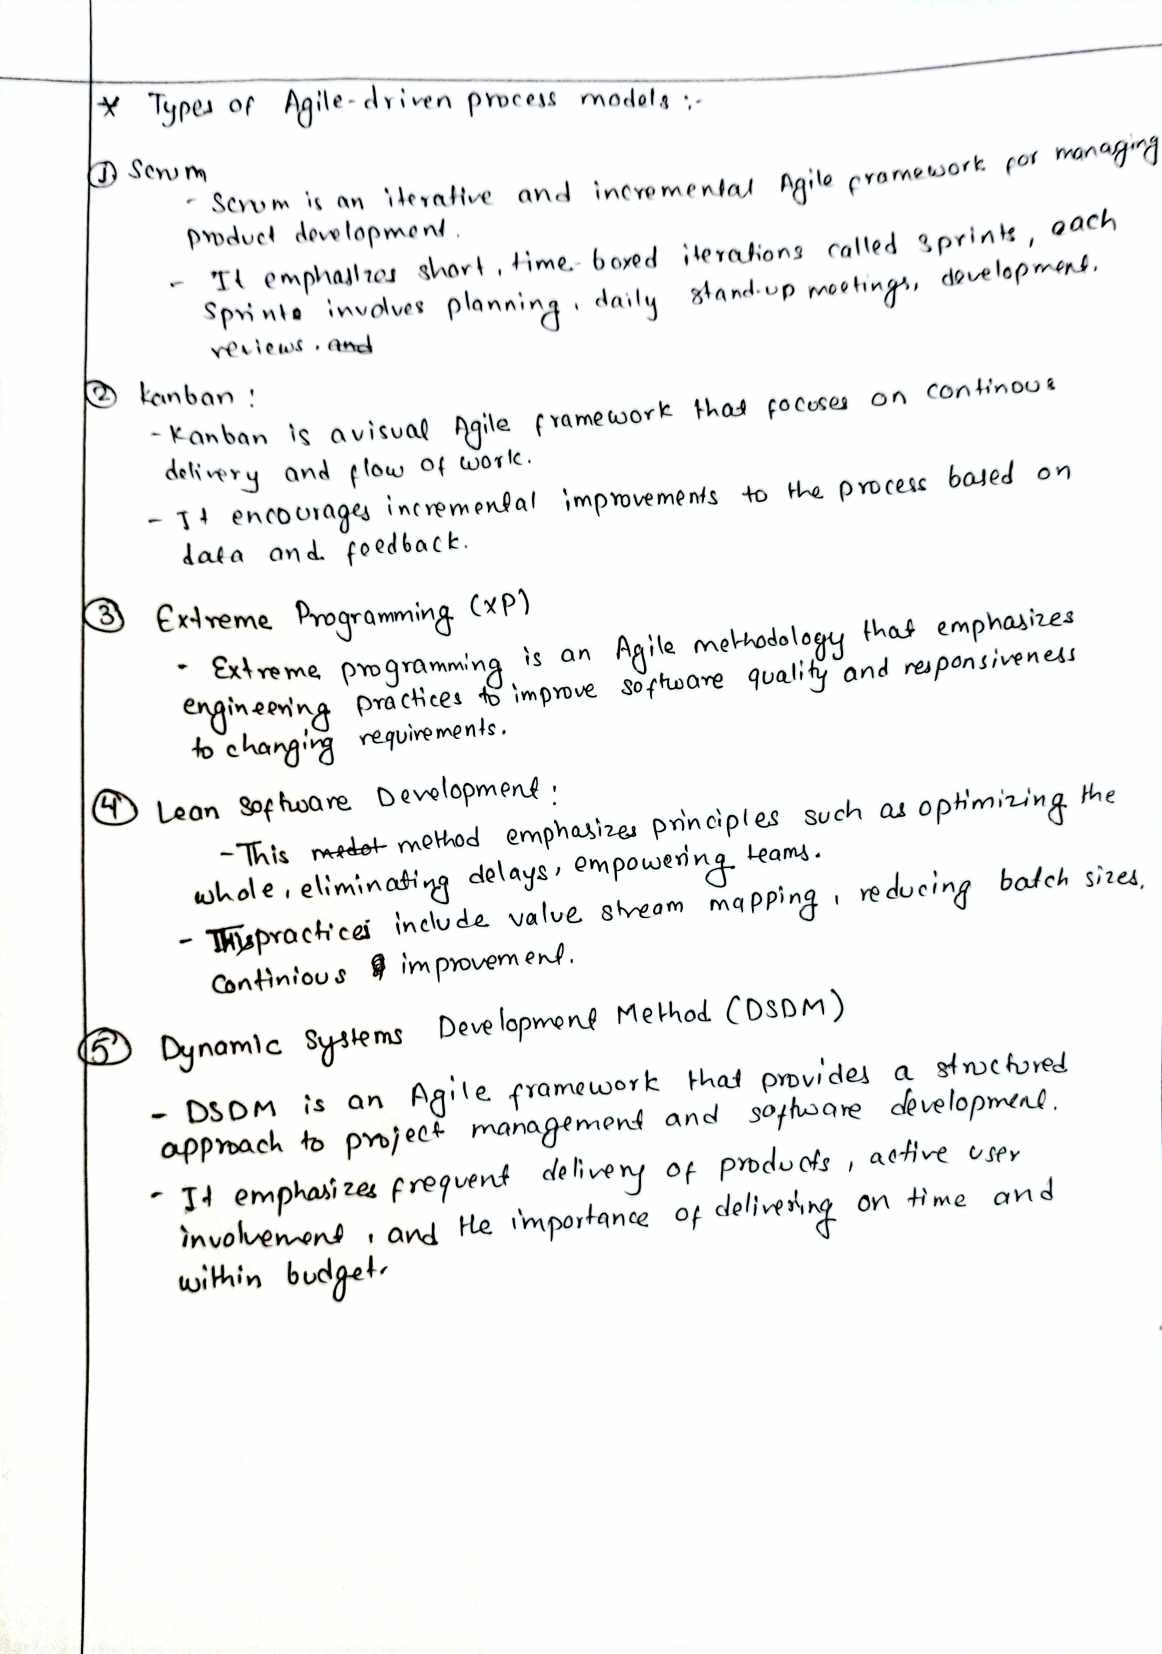 * Types of Agile-driven process models :-
① Scrum
- Scrum is an iterative and incremental Agile framework for managing
product development.
- It emphasizes short, time-boxed iterations called sprints, each
Sprints involves planning, daily stand-up meetings, development,
reviews. and
② Kanban :
- Kanban is a visual Agile framework that focuses on continous
delivery and flow of work.
- It encourages incremental improvements to the process based on
data and feedback.
③ Extreme Programming (XP)
- Extreme programming is an Agile methodology that emphasizes
engineering practices to improve software quality and responsiveness
to changing requirements.
④ Lean Software Development :
- This medot method emphasizes principles such as optimizing the
whole, eliminating delays, empowering teams.
- This practices include value stream mapping, reducing batch sizes,
Continious improvement.
⑤ Dynamic Systems Development Method (DSDM)
- DSDM is an Agile framework that provides a structured
approach to project management and software development.
- It emphasizes frequent delivery of products, active user
involvement, and the importance of delivering on time and
within budget.